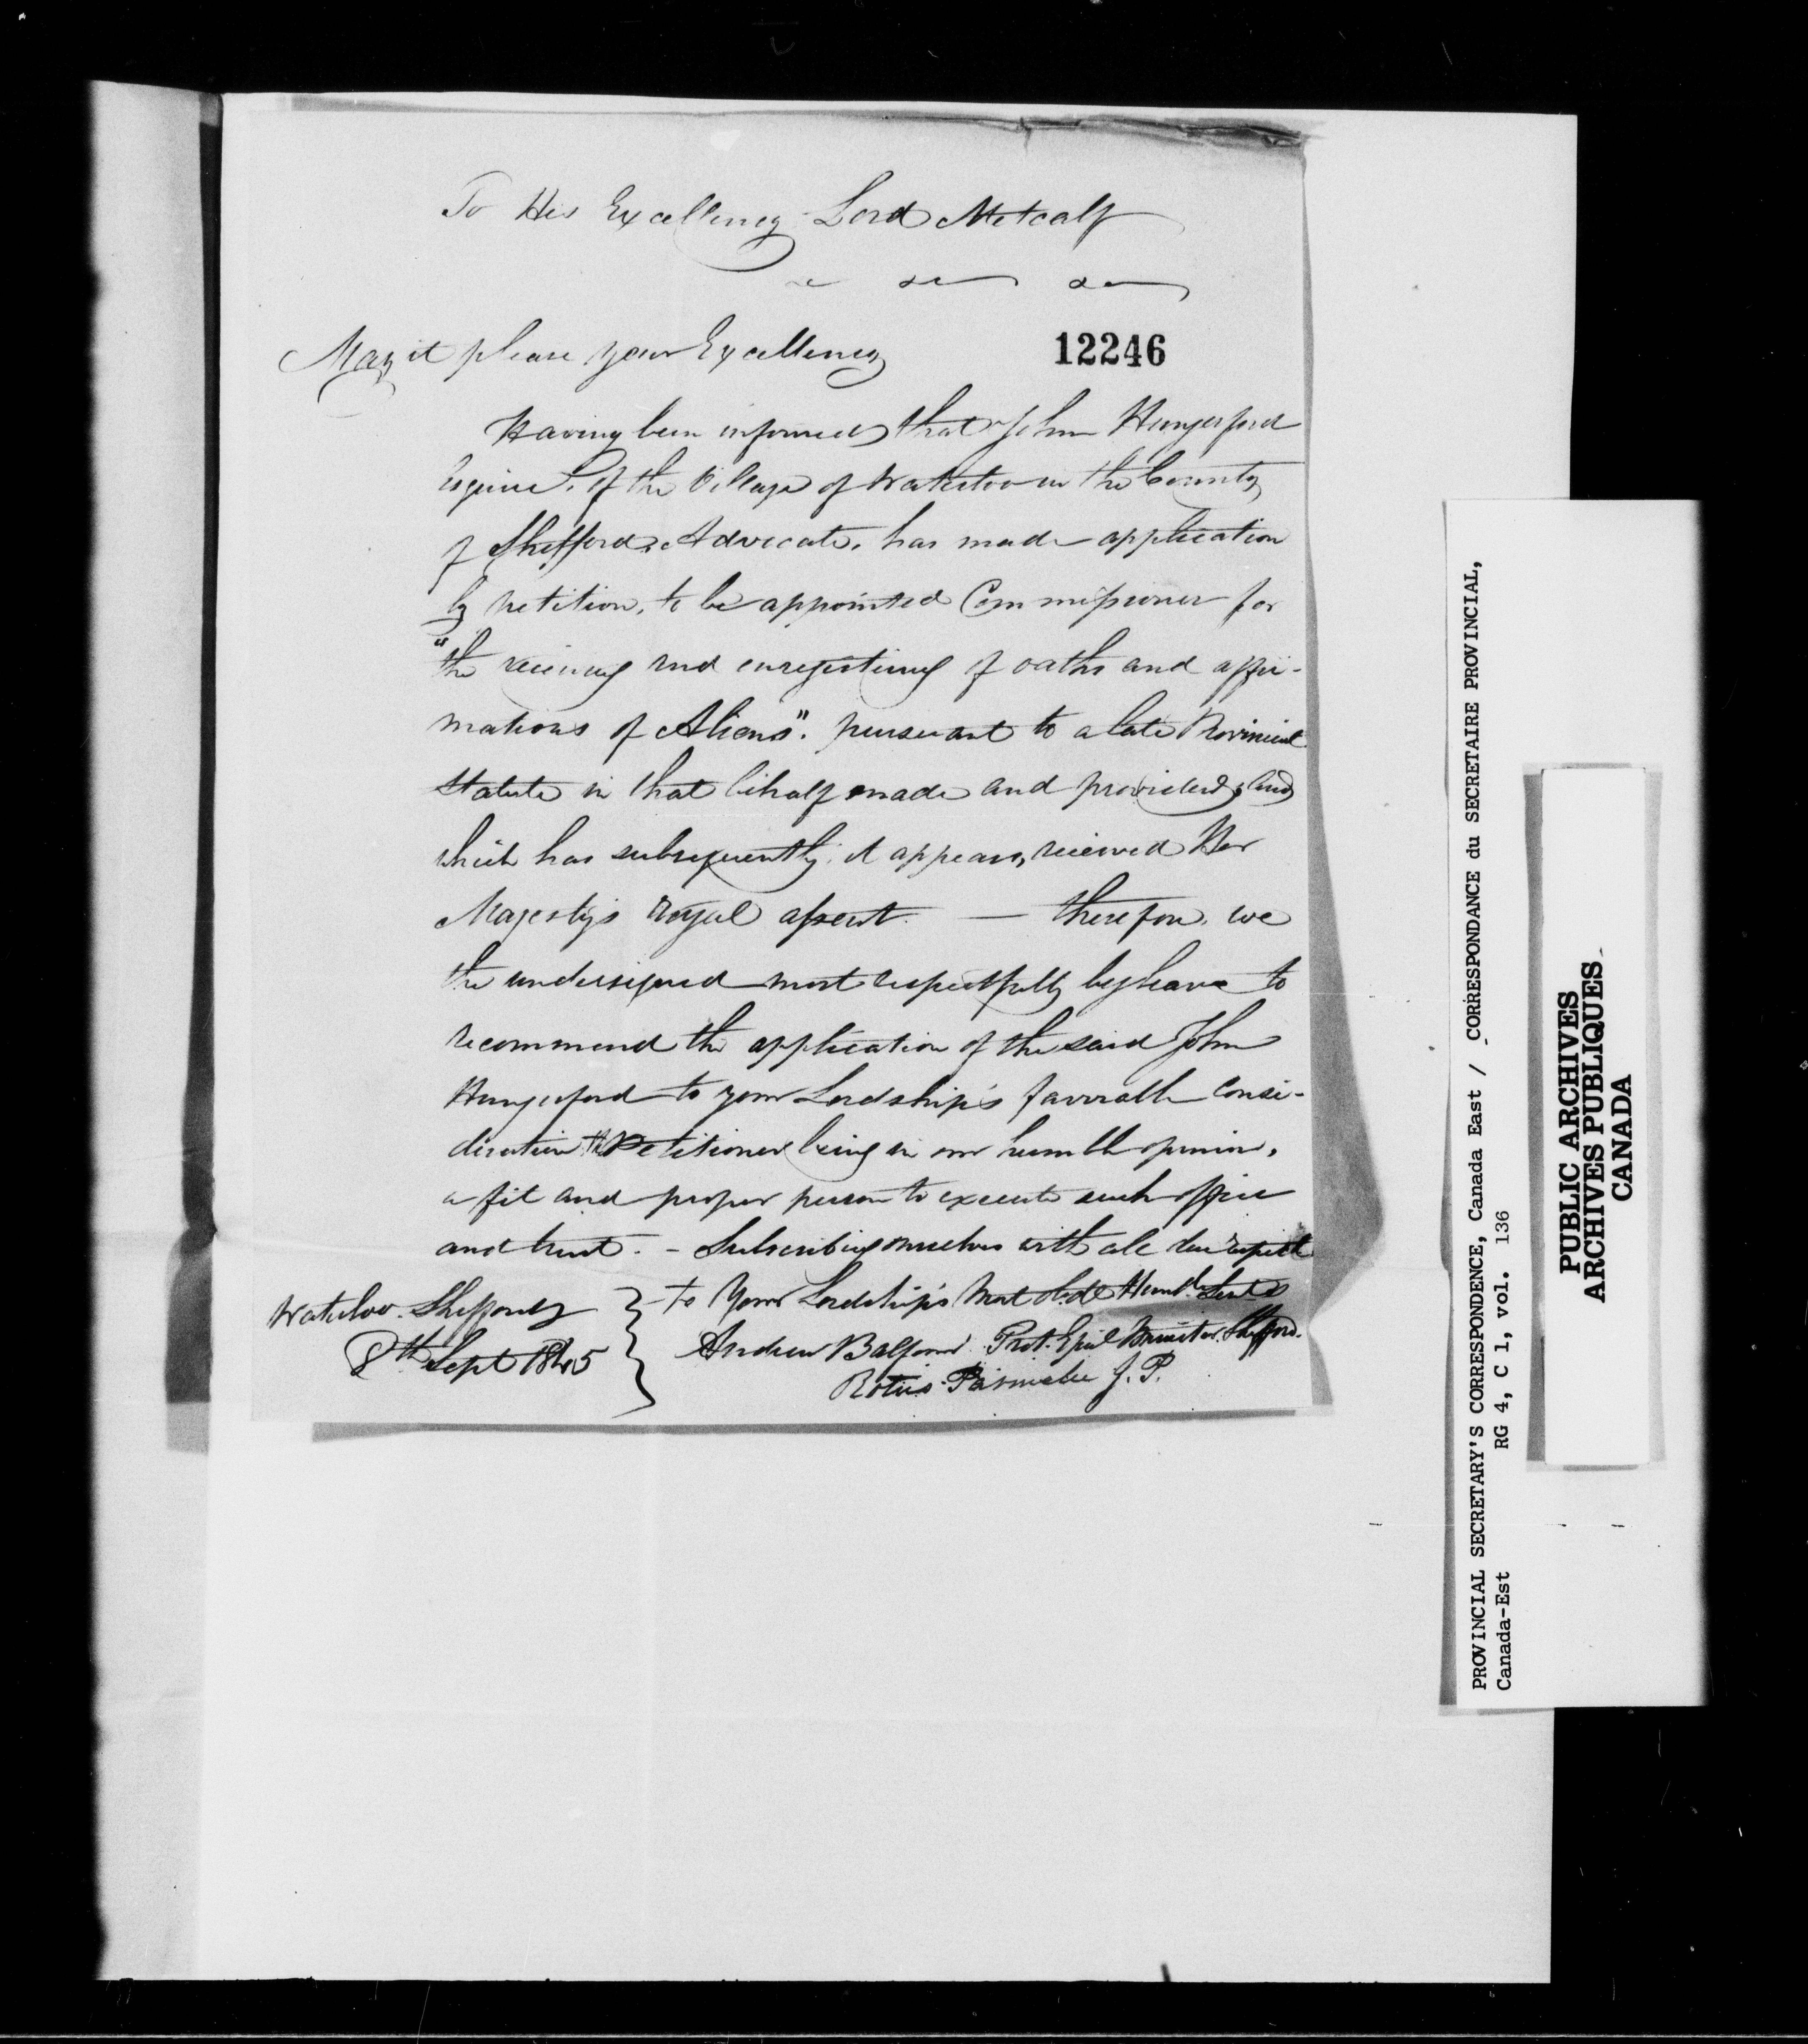 To His Excellency Lord Metcalf
&c &c &c
May it please your Excellency
12246
Having been informed that John Hungerford
Esquire, of the Village of Waterloo in the County
of Shefford, Advocate, has made application
by Petition, to be appointed Commissioner for
"the receiving and enregistering of oaths and affir-
mations of Aliens". pursuant to a late Provincial
Statute in that behalf made and provided, and
which has subsequently, it appears, received Her
Majesty's Royal assent. — therefore, we
the undersigned most respectfully beg leave to
recommend the application of the said John
Hungerford to your Lordship's favorable consi-
deration the Petitioner being in our humble opinion,
a fit and proper person to execute such office
and trust. - Subscribing ourselves with all due respect
to Your Lordship's Most Obdt Humb. Servts
Waterloo. Shefford
8th Sept 1845
Andrew Balfour Prot. Epis'l Minister, Shefford.
Rotus Parmelee J. P.
PROVINCIAL SECRETARY'S CORRESPONDENCE, Canada East / CORRESPONDANCE du SECRETAIRE PROVINCIAL,
Canada-Est RG 4, C 1, vol. 136
PUBLIC ARCHIVES
ARCHIVES PUBLIQUES
CANADA